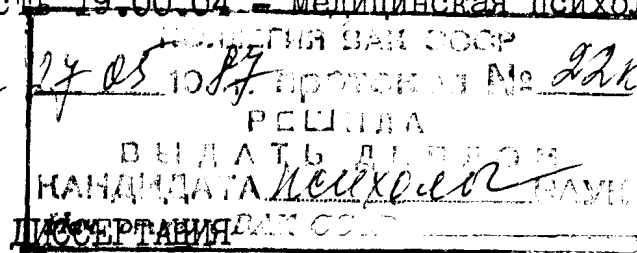 19.00.04 - Медицинская психол
КОЛЛЕГИЯ ВАК СССР
27 05 1987. протокол № 22к
РЕШИЛА
ВЫДАТЬ ДИПЛОМ
КАНДИДАТА психолог НАУК
ВАК СССР
ДИССЕРТАЦИЯ